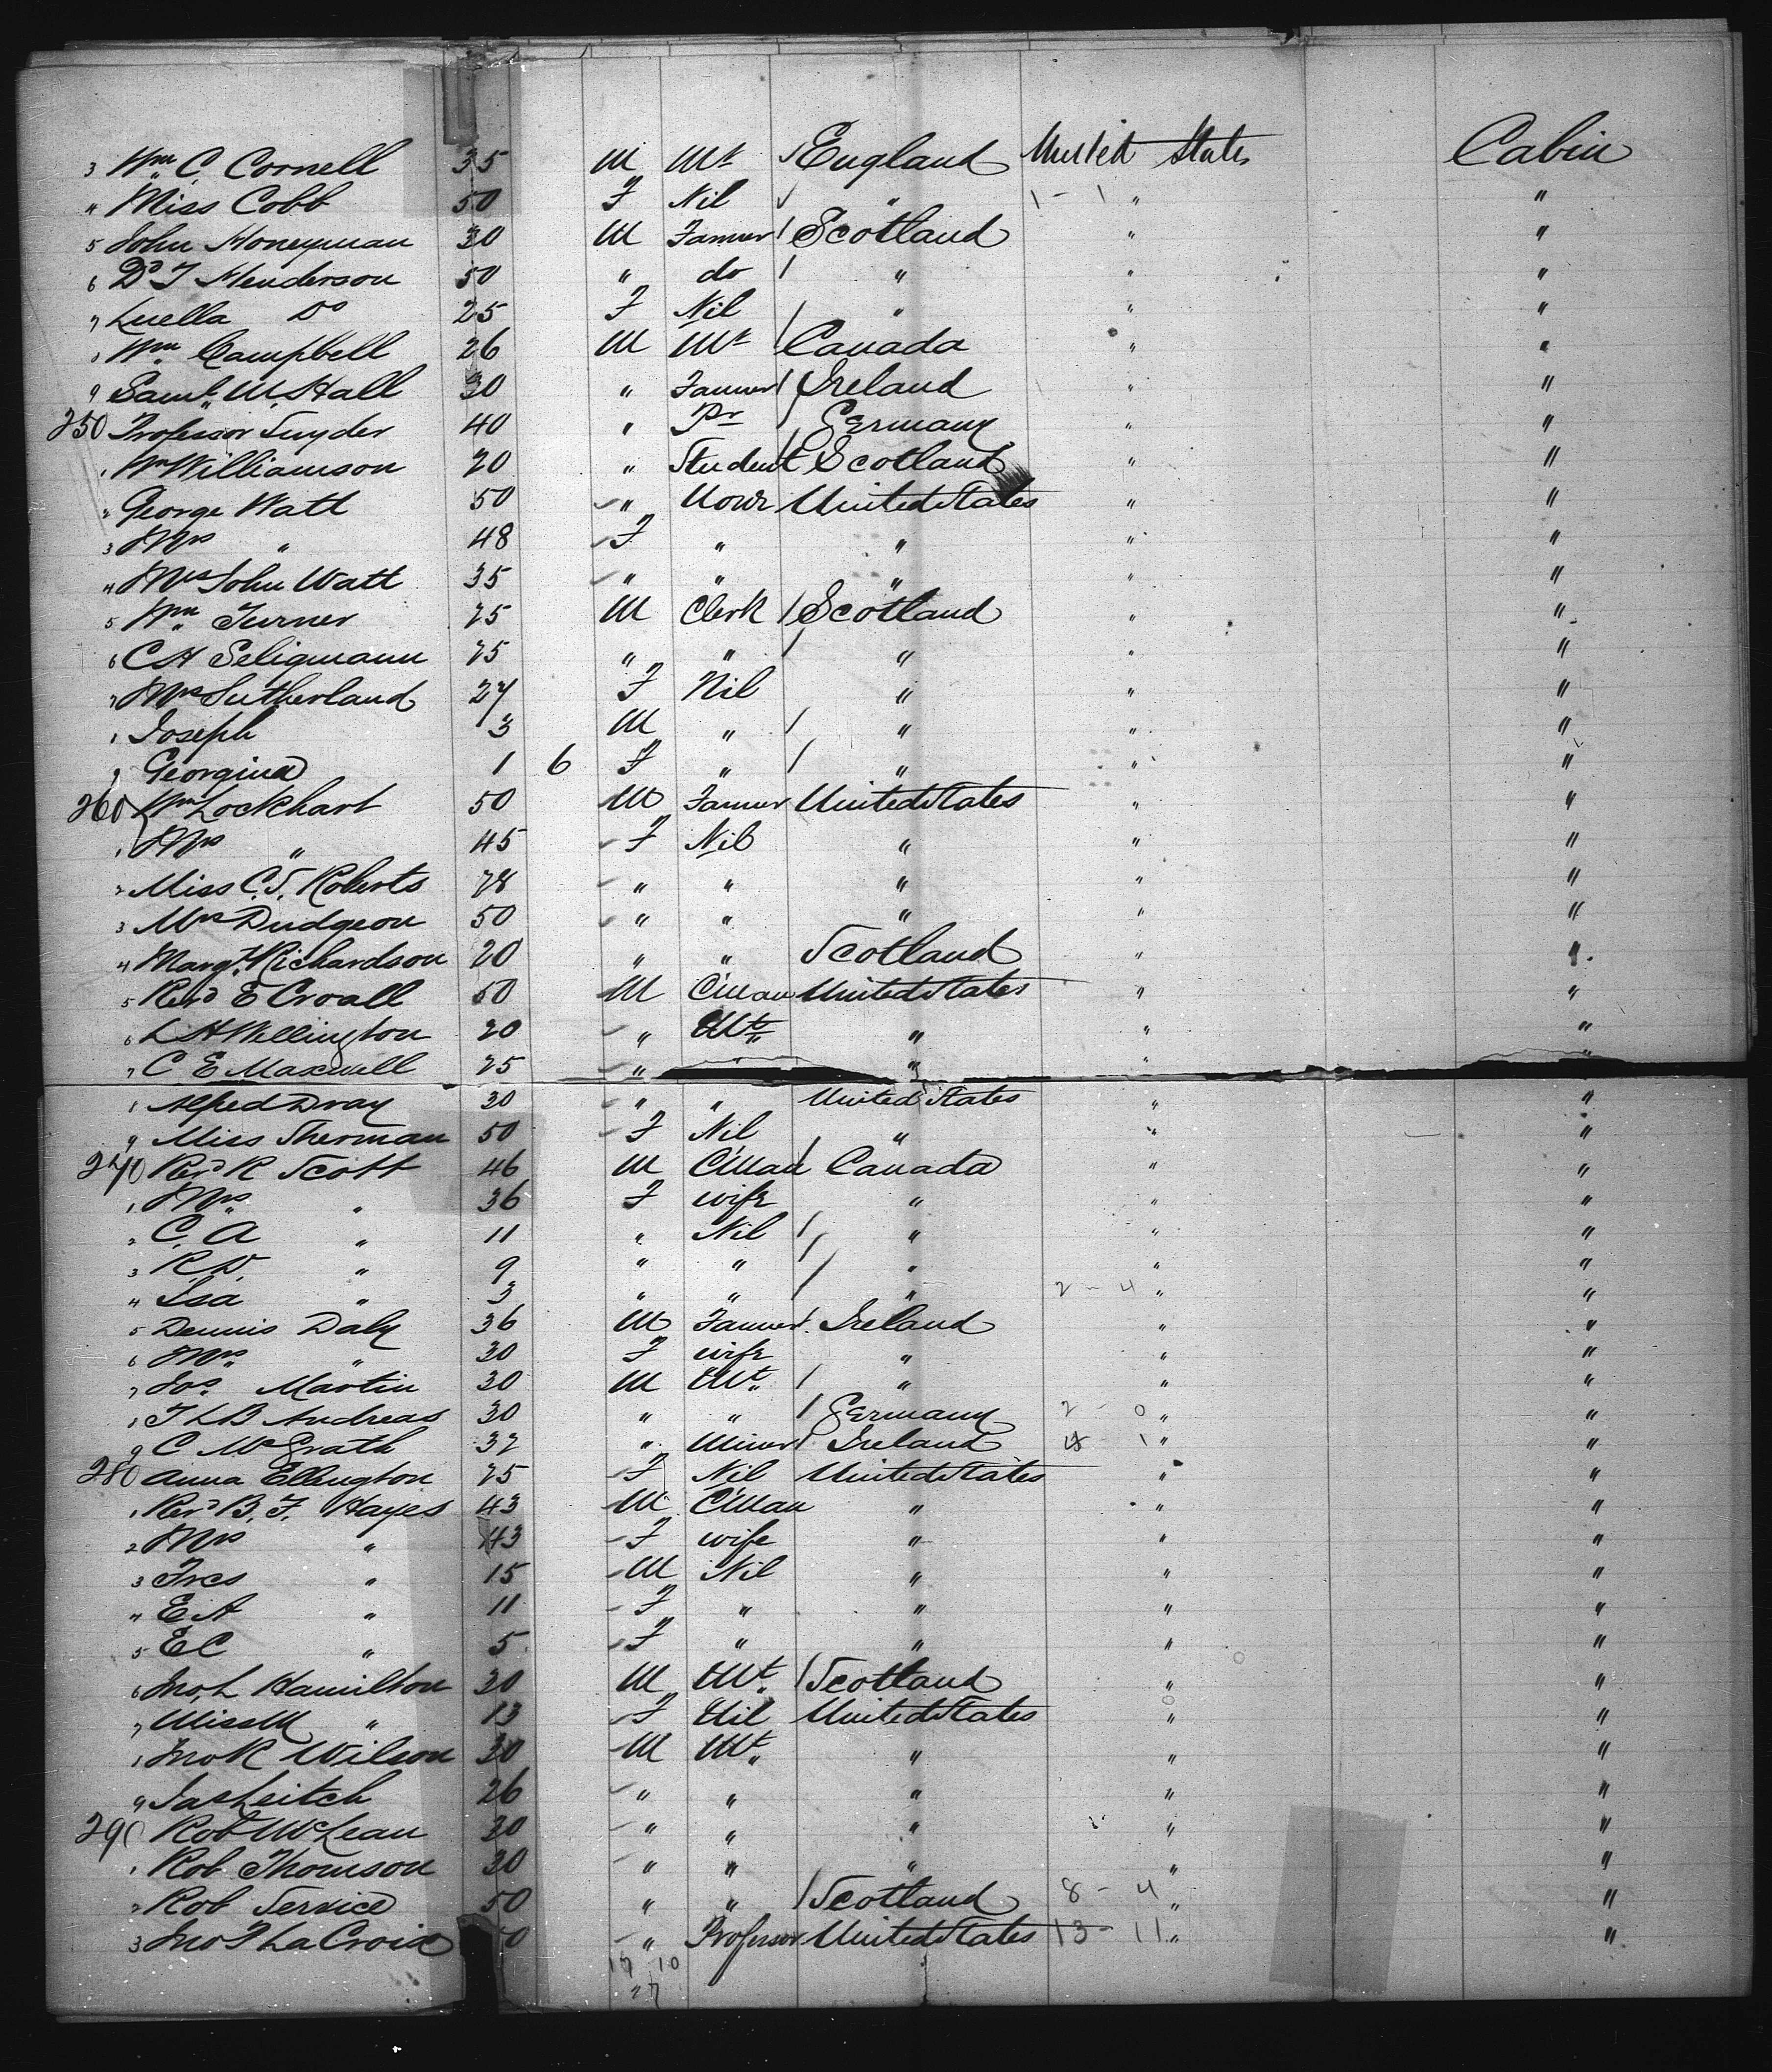 3 Wm. C. Cornell 35 M Mt England United States Cabin
4 Miss Cobb 50 F Nil " 1 - 1 " "
5 John Honeyman 30 M Farmer Scotland " "
6 Dd J Henderson 50 " do " " "
7 Luella Do 25 F Nil " " "
Wm. Campbell 26 M Mt Canada " "
9 Saml. M. Hall 30 " Farmer Ireland " "
250 Professor Snyder 40 " Pr Germany " "
1 Wm Williamson 20 " Student Scotland " "
2 George Watt 50 " None United States " "
3 Mrs " 48 F " " " "
4 Mrs John Watt 35 " " " " "
5 Wm. Turner 25 M Clerk Scotland " "
6 C H Seligmann 25 " " " " "
7 Mrs Sutherland 27 F Nil " " "
Joseph 3 M " " " "
9 Georgina 1 6 F " " " "
260 Wm Lockhart 50 M Farmer United States " "
1 Mrs " 45 F Nil " " "
2 Miss C. J. Roberts 28 " " " " "
3 Mrs Dudgeon 50 " " " " "
4 Margt. Richardson 20 " " Scotland " "
5 Revd E Croall 50 M C'Man United States " "
6 L H Wellington 20 " Mt. " " "
7 C E Maxwell 25 " " " "
Alfred Dray 30 " " United States " "
9 Miss Sherman 50 F Nil " " "
270 Revd R Scott 46 M C'Man Canada " "
1 Mrs. " 36 F wife " " "
2 C. A " 11 " Nil " " "
3 R. D. " 9 " " " " "
4 Isa " 3 " " " 2 - 4 " "
5 Dennis Daly 36 M Farmer Ireland " "
6 Mrs. " 30 F wife " " "
7 Jos. Martin 30 M Mt. " " "
T L B Andreas 30 " " Germany 2 - 0 " "
9 C McGrath 32 " Miner Ireland 1 " "
280 Anna Ellington 25 F Nil United States " "
1 Revd B. F. Hayes 43 M C'Man " " "
2 Mrs " 43 F wife " " "
3 Frcs " 15 M Nil " " "
4 E A " 11 F " " " "
5 E C " 5 F " " " "
6 Jno. L Hamilton 30 M Mt. Scotland " "
7 Miss M " 13 F Nil United States " "
Jno R Wilson 30 M Mt. " " "
9 Jas Leitch 26 " " " " "
290 Rob McLean 30 " " " " "
1 Rob Thomson 30 " " " " "
2 Rob Service 50 " " Scotland 8 - 4 " "
3 Jno F LaCroix 0 " Professor United States 13 - 11 " "
17 10
27